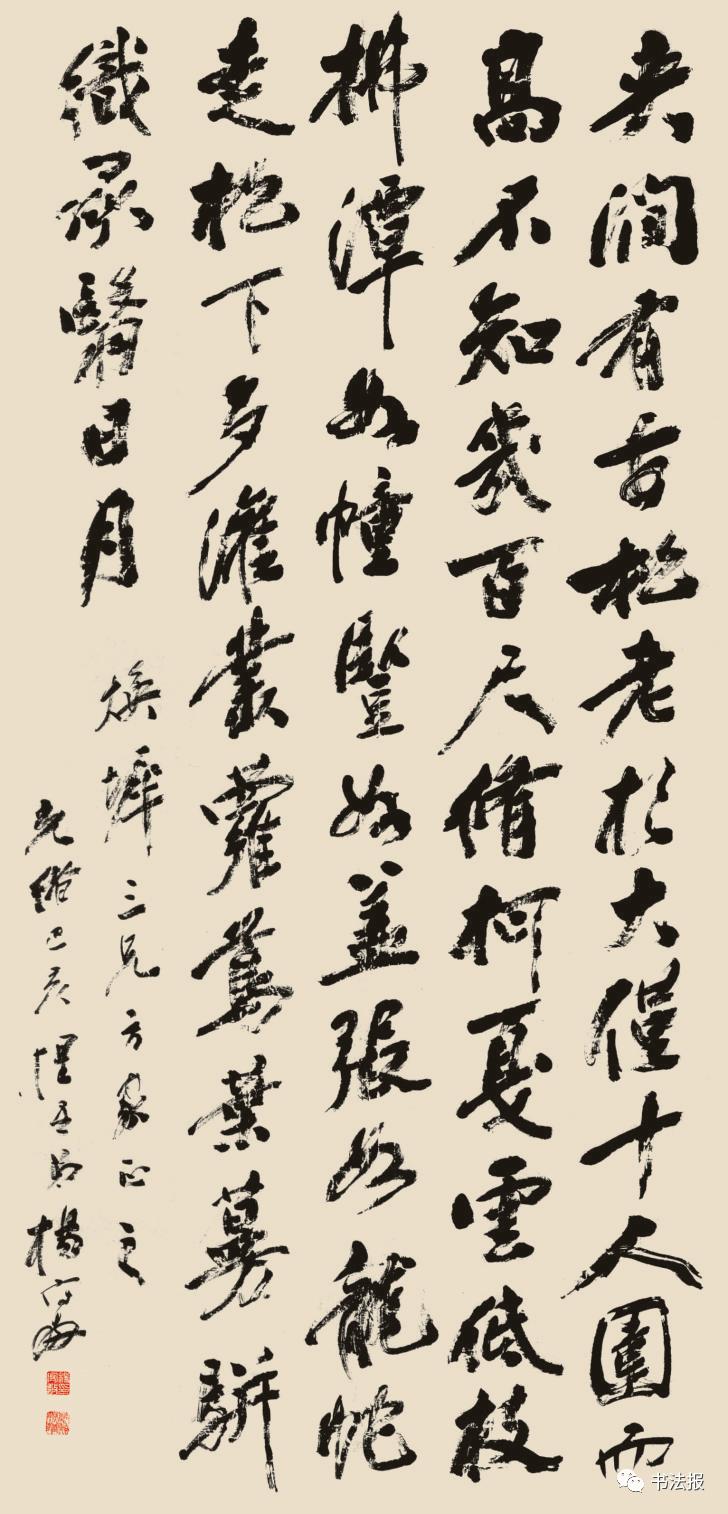 夾澗有古松老杉大僅十人圍而
高不知幾百尺脩柯戛雲低枝
拂潭如幢豎如蓋張如龍蛇
走松下多灌叢蘿蔦葉蔓駢
織承翳日月
煥墀三兄方家正之
光緒己亥惺吾弟楊守敬
书法报